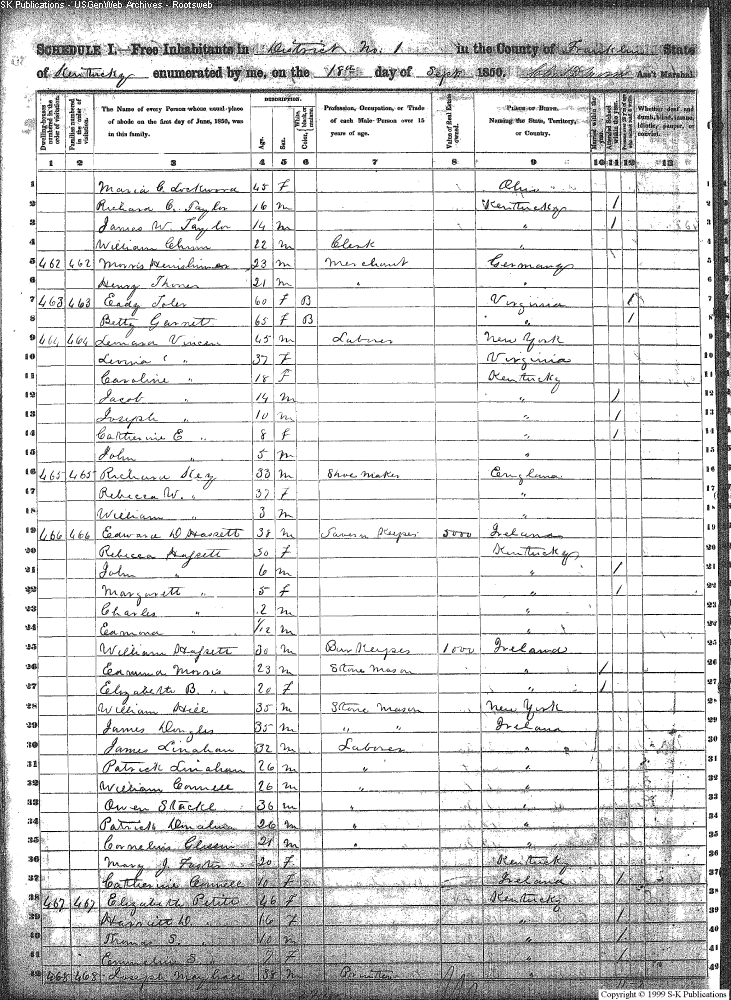 SK Publications - USGenWeb Archives - Rootsweb
SCHEDULE I.—Free Inhabitants in District No. 1 in the County of Franklin State
of Kentucky enumerated by me, on the 18th day of Sept 1850. Ass't Marshal.
Dwelling-houses numbered in the order of visitation.
Families numbered in the order of visitation.
The Name of every Person whose usual place of abode on the first day of June, 1850, was in this family.
DESCRIPTION.
Age.
Sex.
Color, White, black, or mulatto.
Profession, Occupation, or Trade of each Male Person over 15 years of age.
Value of Real Estate owned.
PLACE OF BIRTH. Naming the State, Territory, or Country.
Married within the year.
Attended School within the year.
Whether deaf and dumb, blind, insane, idiotic, pauper, or convict.
1 2 3 4 5 6 7 8 9 10 11 12 13
1 Maria C. Lockwood 45 F Ohio
2 Richard C. Taylor 16 m Kentucky / 2
3 James W. Taylor 14 m " / 3
4 William Chinn 22 m Clerk " 4
5 462 462 Morris 23 m Merchant Germany 5
6 Henry 21 m " " 6
7 463 463 Eady Toler 60 F B Virginia / 7
8 Betty Garnett 65 F B " / 8
9 464 464 Vincen 45 m Laborer New York 9
10 " 37 F Virginia 10
11 Caroline " 18 F Kentucky 11
12 Jacob " 14 m " / 12
13 Joseph " 10 m " / 13
14 Catherine E " 8 f " / 14
15 John " 5 m " 15
16 465 465 Richard Key 33 m Shoe Maker England 16
17 Rebecca W. " 37 F " 17
18 William " 3 m " 18
19 466 466 Edward D Hassett 38 m Tavern Keeper 5000 Ireland 19
20 Rebecca Hassett 30 F Kentucky 20
21 John " 6 m " / 21
22 Margarett " 5 f " / 22
23 Charles " 2 m " 23
24 Edmond " 1/12 m " 24
25 William Hassett 30 m Bar Keeper 1000 Ireland 25
26 Edmund Morris 23 m Stone Mason " / 26
27 Elizabeth B. " 20 F " / 27
28 William Hill 35 m Stone Mason New York 28
29 James Douglas 35 m " " Ireland 29
30 James Linahan 32 m Laborer " 30
31 Patrick Linahan 26 m " " 31
32 William Connell 26 m " " 32
33 Owen Stackle 36 m " " 33
34 Patrick Donahue 26 m " " 34
35 Cornelius 21 m " " 35
36 Mary J. Foster 20 F Kentucky 36
37 Catherine Connell 10 F Ireland / 37
38 467 467 Elizabeth Petite 46 F Kentucky 38
39 Harriett D. " 16 F " / 39
40 Thomas S. " 10 m " / 40
41 Emmeline S. " 7 F " / 41
42 468 468 Joseph 38 m Printer " 42
Copyright © 1999 S-K Publications